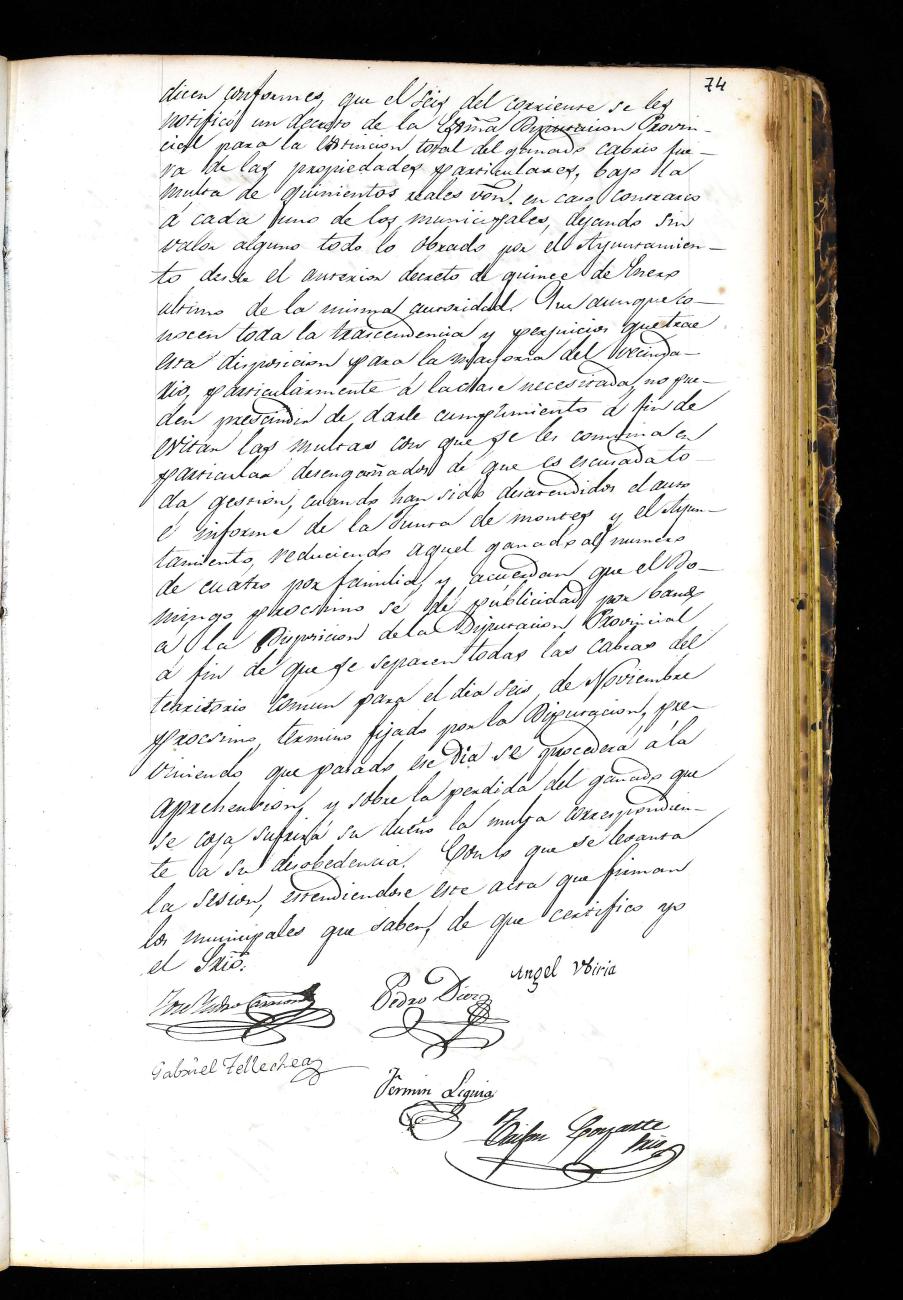 74
dicen conformes, que el seis del corriente se les
notificó un decreto de la Exma Diputacion Provin-
cial para la estincion total del ganado cabrio fue-
ra de las propiedades particulares, bajo la
multa de quinientos reales von. en caso contrario
a cada uno de los municipales, dejando sin
valor alguno todo lo obrado por el Ayuntamien-
to desde el anterior decreto de quince de Enero
ultimo de la misma autoridad. Que aunque co-
nocen toda la trascendencia y perjuicios que trae
esta disposicion para la mayoria del vecinda-
rio, particularmente a la clase necesitada, no pue-
den prescindir de darle cumplimiento a fin de
evitar las multas con que se les comina en
particular desengañados de que es escusada to-
da gestion, cuando han sido desatendidos el auto
é informe de la Junta de montes y el Ayun-
tamiento, reduciendo aquel ganado al numero
de cuatro por familia, y acuerdan que el Do-
mingo procsimo se dé publicidad por bando
a la Disposicion de la Diputacion Provincial
a fin de que se separen todas las cabras del
territorio comun para el dia seis de Noviembre
procsimo, termino fijado por la Diputacion, pre-
viniendo que pasado ese Dia se procederá á la
aprehencion, y sobre la perdida del ganado que
se coja sufrirá su dueño la multa correspondien-
te a su desobedencia. Con lo que se levanta
la sesion, estendiendose este acta que firman
los municipales que saben, de que certifico yo
el Srio:
Angel Ubiria
Pedro Diez
Gabriel Tellechea
Fermin Leguia
Srio